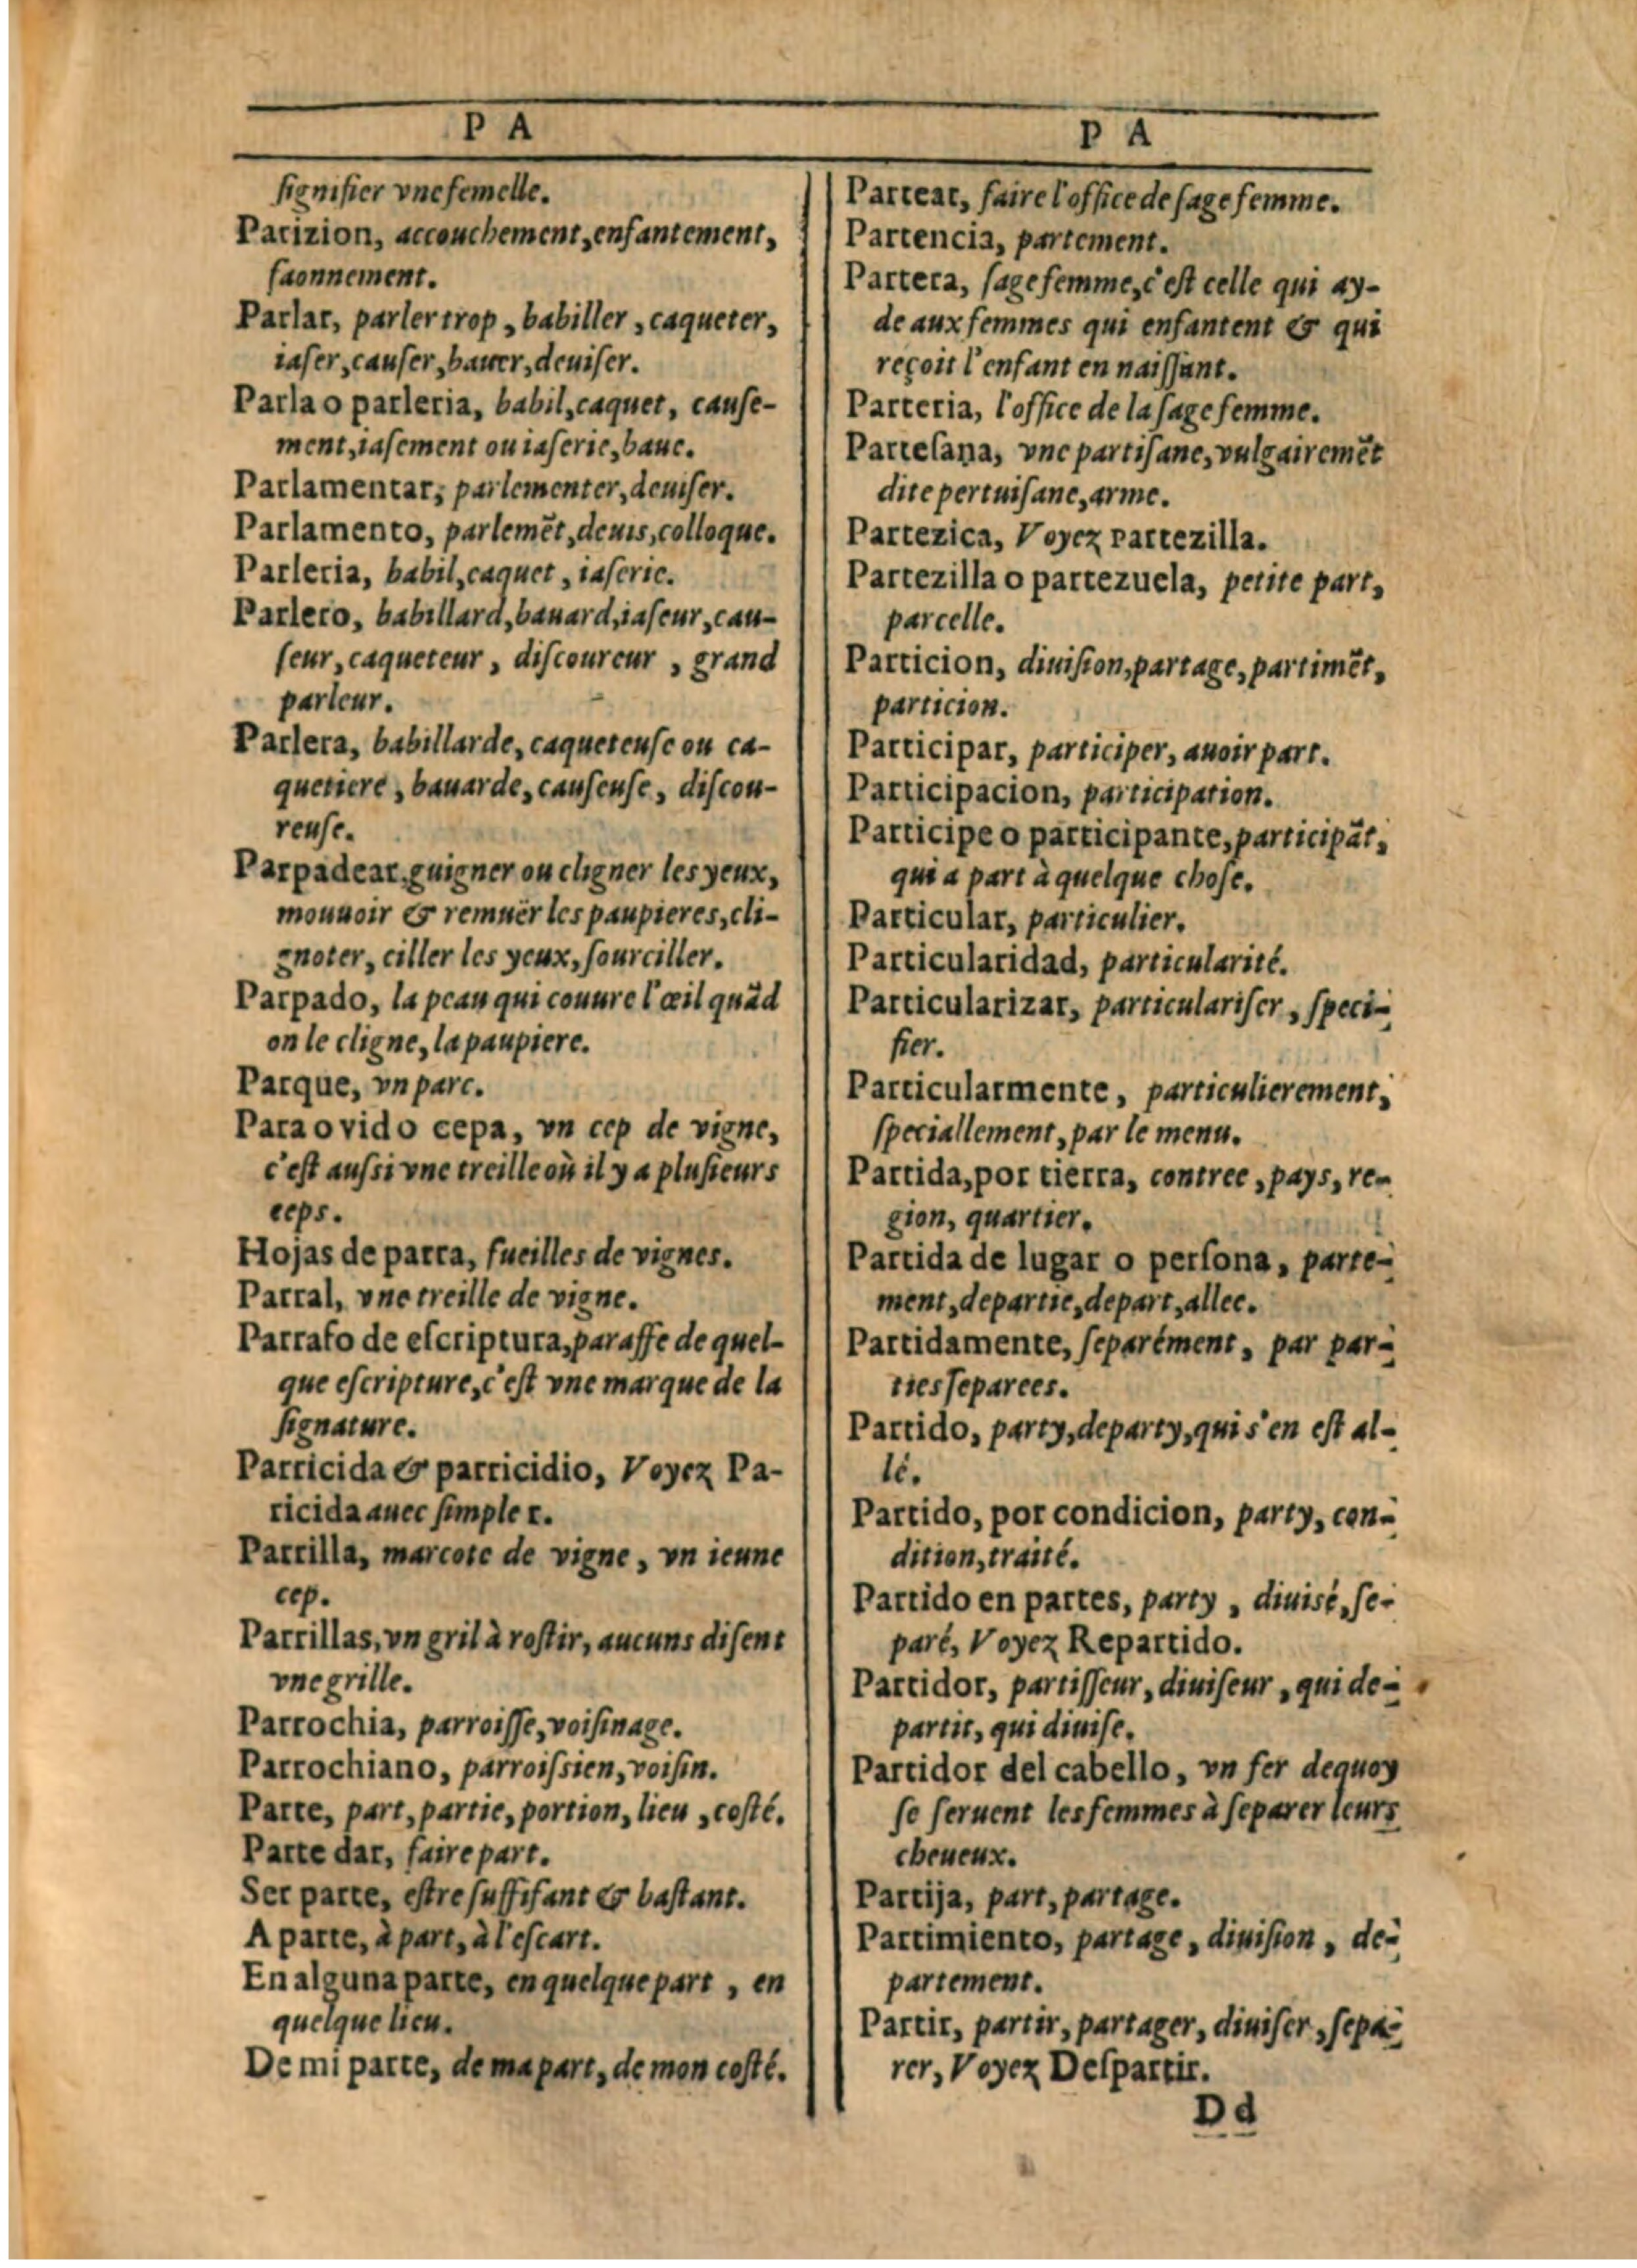 P A
ſignifier vne femelle.
Parizion, accouchement, enfantement,
faonnement.
Parlar, parler trop, babiller, caqueter,
iaſer, cauſer, bauer, deuiſer.
Parla o parleria, babil, caquet, cauſe-
ment, iaſement ou iaſerie, baue.
Parlamentar, parlementer, deuiſer.
Parlamento, parlemẽt, deuis, colloque.
Parleria, babil, caquet, iaſerie.
Parlero, babillard, bauard, iaſeur, cau-
ſeur, caqueteur, diſcoureur, grand
parleur.
Parlera, babillarde, caqueteuſe ou ca-
quetiere, bauarde, cauſeuſe, diſcou-
reuſe.
Parpadear, guigner ou cligner les yeux,
mouuoir & remuër les paupieres, cli-
gnoter, ciller les yeux, ſourciller.
Parpado, la peau qui couure l'œil quãd
on le cligne, la paupiere.
Parque, vn parc.
Para o vid o cepa, vn cep de vigne,
c'eſt auſsi vne treille où il y a pluſieurs
ceps.
Hojas de parra, fueilles de vignes.
Parral, vne treille de vigne.
Parrafo de eſcriptura, paraffe de quel-
que eſcripture, c'eſt vne marque de la
ſignature.
Parricida & parricidio, Voyez Pa-
ricida auec ſimple r.
Parrilla, marcote de vigne, vn ieune
cep.
Parrillas, vn gril à roſtir, aucuns diſent
vne grille.
Parrochia, parroiſſe, voiſinage.
Parrochiano, parroiſsien, voiſin.
Parte, part, partie, portion, lieu, coſté.
Parte dar, faire part.
Ser parte, eſtre ſuffiſant & baſtant.
A parte, à part, à l'eſcart.
En alguna parte, en quelque part, en
quelque lieu.
De mi parte, de ma part, de mon coſté.
P A
Partear, faire l'office de ſage femme.
Partencia, partement.
Partera, ſage femme, c'eſt celle qui ay-
de aux femmes qui enfantent & qui
reçoit l'enfant en naiſſant.
Parteria, l'office de la ſage femme.
Parteſana, vne partiſane, vulgairemẽt
dite pertuiſane, arme.
Partezica, Voyez Partezilla.
Partezilla o partezuela, petite part,
parcelle.
Particion, diuiſion, partage, partimẽt,
particion.
Participar, participer, auoir part.
Participacion, participation.
Participe o participante, participãt,
qui a part à quelque choſe.
Particular, particulier.
Particularidad, particularité.
Particularizar, particulariſer, ſpeci-
fier.
Particularmente, particulierement,
ſpeciallement, par le menu.
Partida, por tierra, contree, pays, re-
gion, quartier.
Partida de lugar o perſona, parte-
ment, departie, depart, allee.
Partidamente, ſeparément, par par-
ties ſeparees.
Partido, party, departy, qui s'en eſt al-
lé.
Partido, por condicion, party, con-
dition, traité.
Partido en partes, party, diuisé, ſe-
paré, Voyez Repartido.
Partidor, partiſſeur, diuiſeur, qui de-
partit, qui diuiſe.
Partidor del cabello, vn fer dequoy
ſe ſeruent les femmes à ſeparer leurs
cheueux.
Partija, part, partage.
Partimiento, partage, diuiſion, de-
partement.
Partir, partir, partager, diuiſer, ſepa-
rer, Voyez Deſpartir.
D d